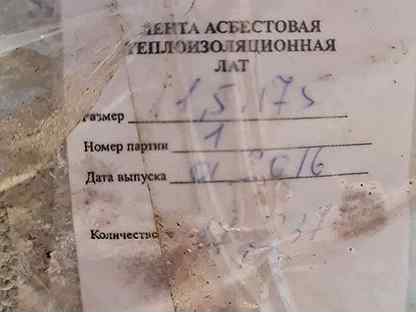 ЛЕНТА АСБЕСТОВАЯ
ТЕПЛОИЗОЛЯЦИОННАЯ
ЛАТ
Размер 1,5 175
Номер партии 1
Дата выпуска 2016
Количество